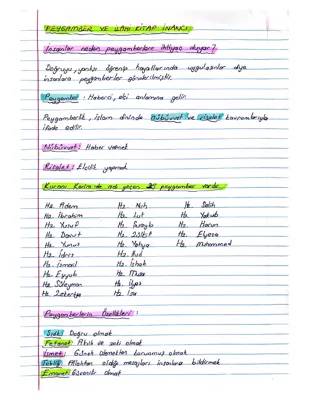 PEYGAMBER VE İLAHİ KİTAP İNANCI
İnsanlar neden peygamberlere ihtiyaç duyar?
Doğruyu, yanlışı öğrenip hayatlarında uygulasınlar diye
insanlara peygamberler gönderilmiştir.
Peygamber: Haberci, elçi anlamına gelir.
Peygamberlik, İslam dininde Nübüvvet ve risalet kavramlarıyla
ifade edilir.
Nübüvvet: Haber vermek
Risalet: Elçilik yapmak
Kuranı Kerim'de adı geçen 25 peygamber vardır.
Hz. Adem Hz. Nuh Hz. Salih
Hz. İbrahim Hz. Lut Hz. Yakub
Hz. Yusuf Hz. Şuayb Hz. Harun
Hz. Davut Hz. Zülkifl Hz. Elyesa
Hz. Yunus Hz. Yahya Hz. Muhammed
Hz. İdris Hz. Hud
Hz. İsmail Hz. İshak
Hz. Eyyub Hz. Musa
Hz. Süleyman Hz. İlyas
Hz. Zekeriya Hz. İsa
Peygamberlerin Özellikleri:
Sıdk: Doğru olmak
Fetanet: Akıllı ve zeki olmak
İsmet: Günah işlemekten korunmuş olmak
Tebliğ: Allahtan aldığı mesajları insanlara bildirmek
Emanet: Güvenilir olmak